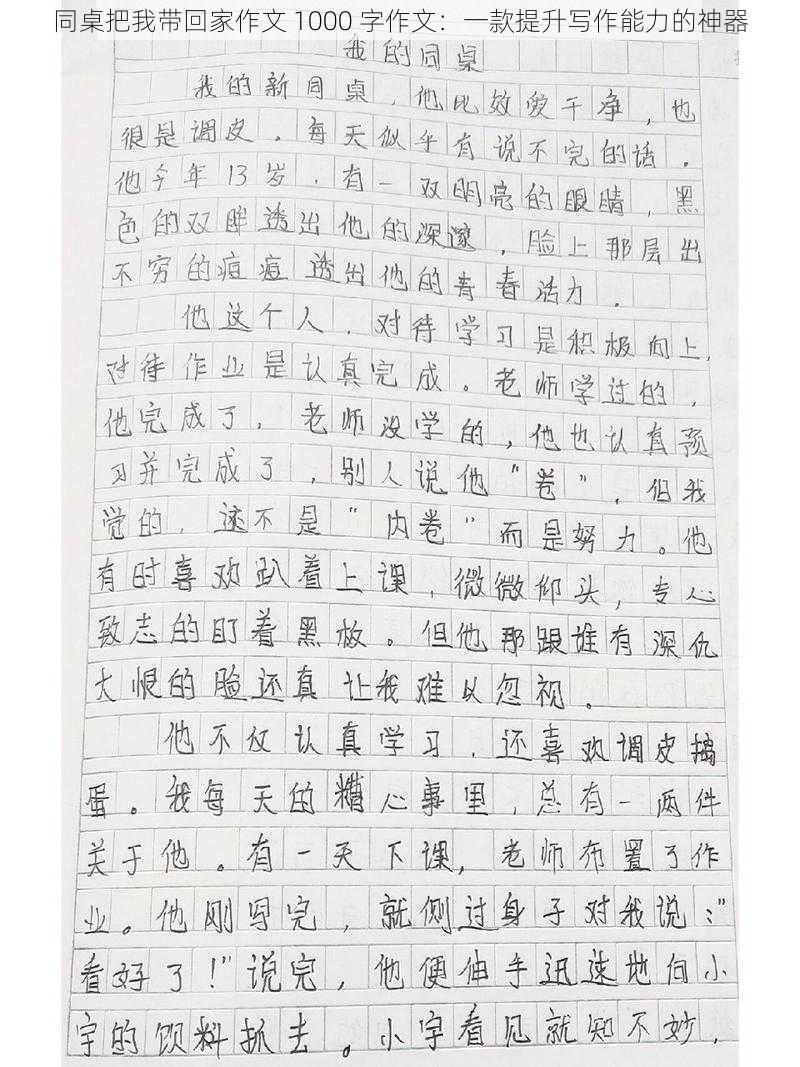 同桌把我带回家作文 1000 字作文：一款提升写作能力的神器
我的同桌
我的新同桌，他比效爱干净，也
很是调皮。每天似乎有说不完的话。
他今年13岁，有一双明亮的眼睛，黑
色的双眸透出他的深邃，脸上那层出
不穷的痘痘透出他的青春活力。
他这个人，对待学习是积极向上，
对待作业是认真完成。老师学过的，
他完成了，老师没学的，他也认真预
习并完成了，别人说他“卷”，但我
觉的，这不是“内卷”而是努力。他
有时喜欢趴着上课，微微仰头，专心
致志的盯着黑板。但他那跟谁有深仇
大恨的脸还真让我难以忽视。
他不仅认真学习，还喜欢调皮捣
蛋。我每天的糟心事里，总有一两件
关于他。有一天下课，老师布置了作
业。他刚写完，就侧过身子对我说：”
看好了！”说完，他便伸手迅速地向小
宇的饮料抓去。小宇看见就知不妙，